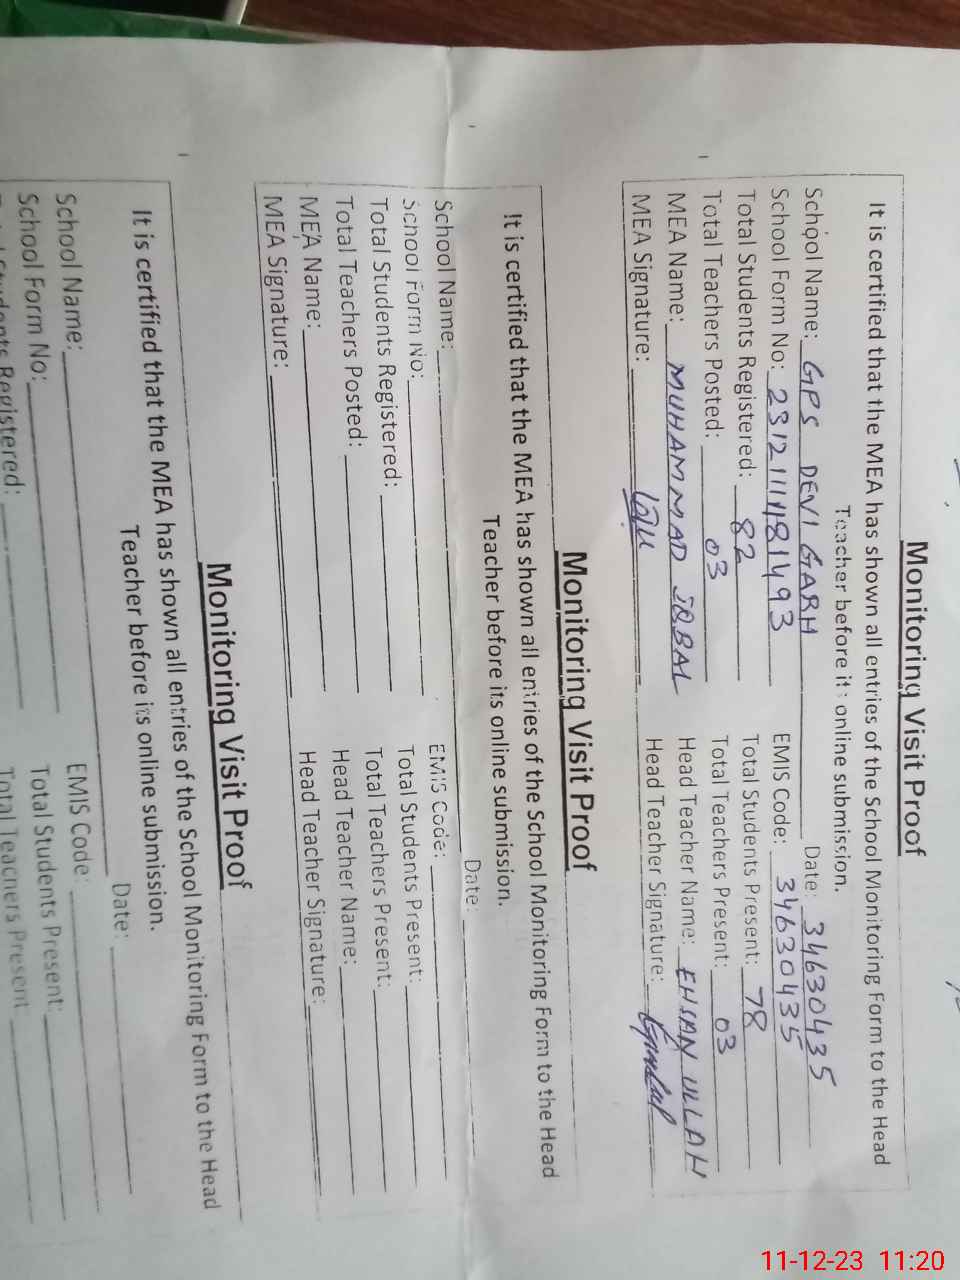 Monitoring Visit Proof
It is certified that the MEA has shown all entries of the School Monitoring Form to the Head
Teacher before its online submission.
School Name: GPS DEVI GARH Date: 34630435
School Form No: EMIS Code: 34630435
Total Students Registered: 82 Total Students Present: 78
Total Teachers Posted: 03 Total Teachers Present: 03
MEA Name: MUHAMMAD IQBAL Head Teacher Name: EHSAN ULLAH
MEA Signature: Head Teacher Signature:
Monitoring Visit Proof
It is certified that the MEA has shown all entries of the School Monitoring Form to the Head
Teacher before its online submission.
School Name: Date:
School Form No: EMIS Code:
Total Students Registered: Total Students Present:
Total Teachers Posted: Total Teachers Present:
MEA Name: Head Teacher Name:
MEA Signature: Head Teacher Signature:
Monitoring Visit Proof
It is certified that the MEA has shown all entries of the School Monitoring Form to the Head
Teacher before its online submission.
School Name: Date:
School Form No: EMIS Code:
Students Registered: Total Students Present:
Total Teachers Present:
11-12-23 11:20